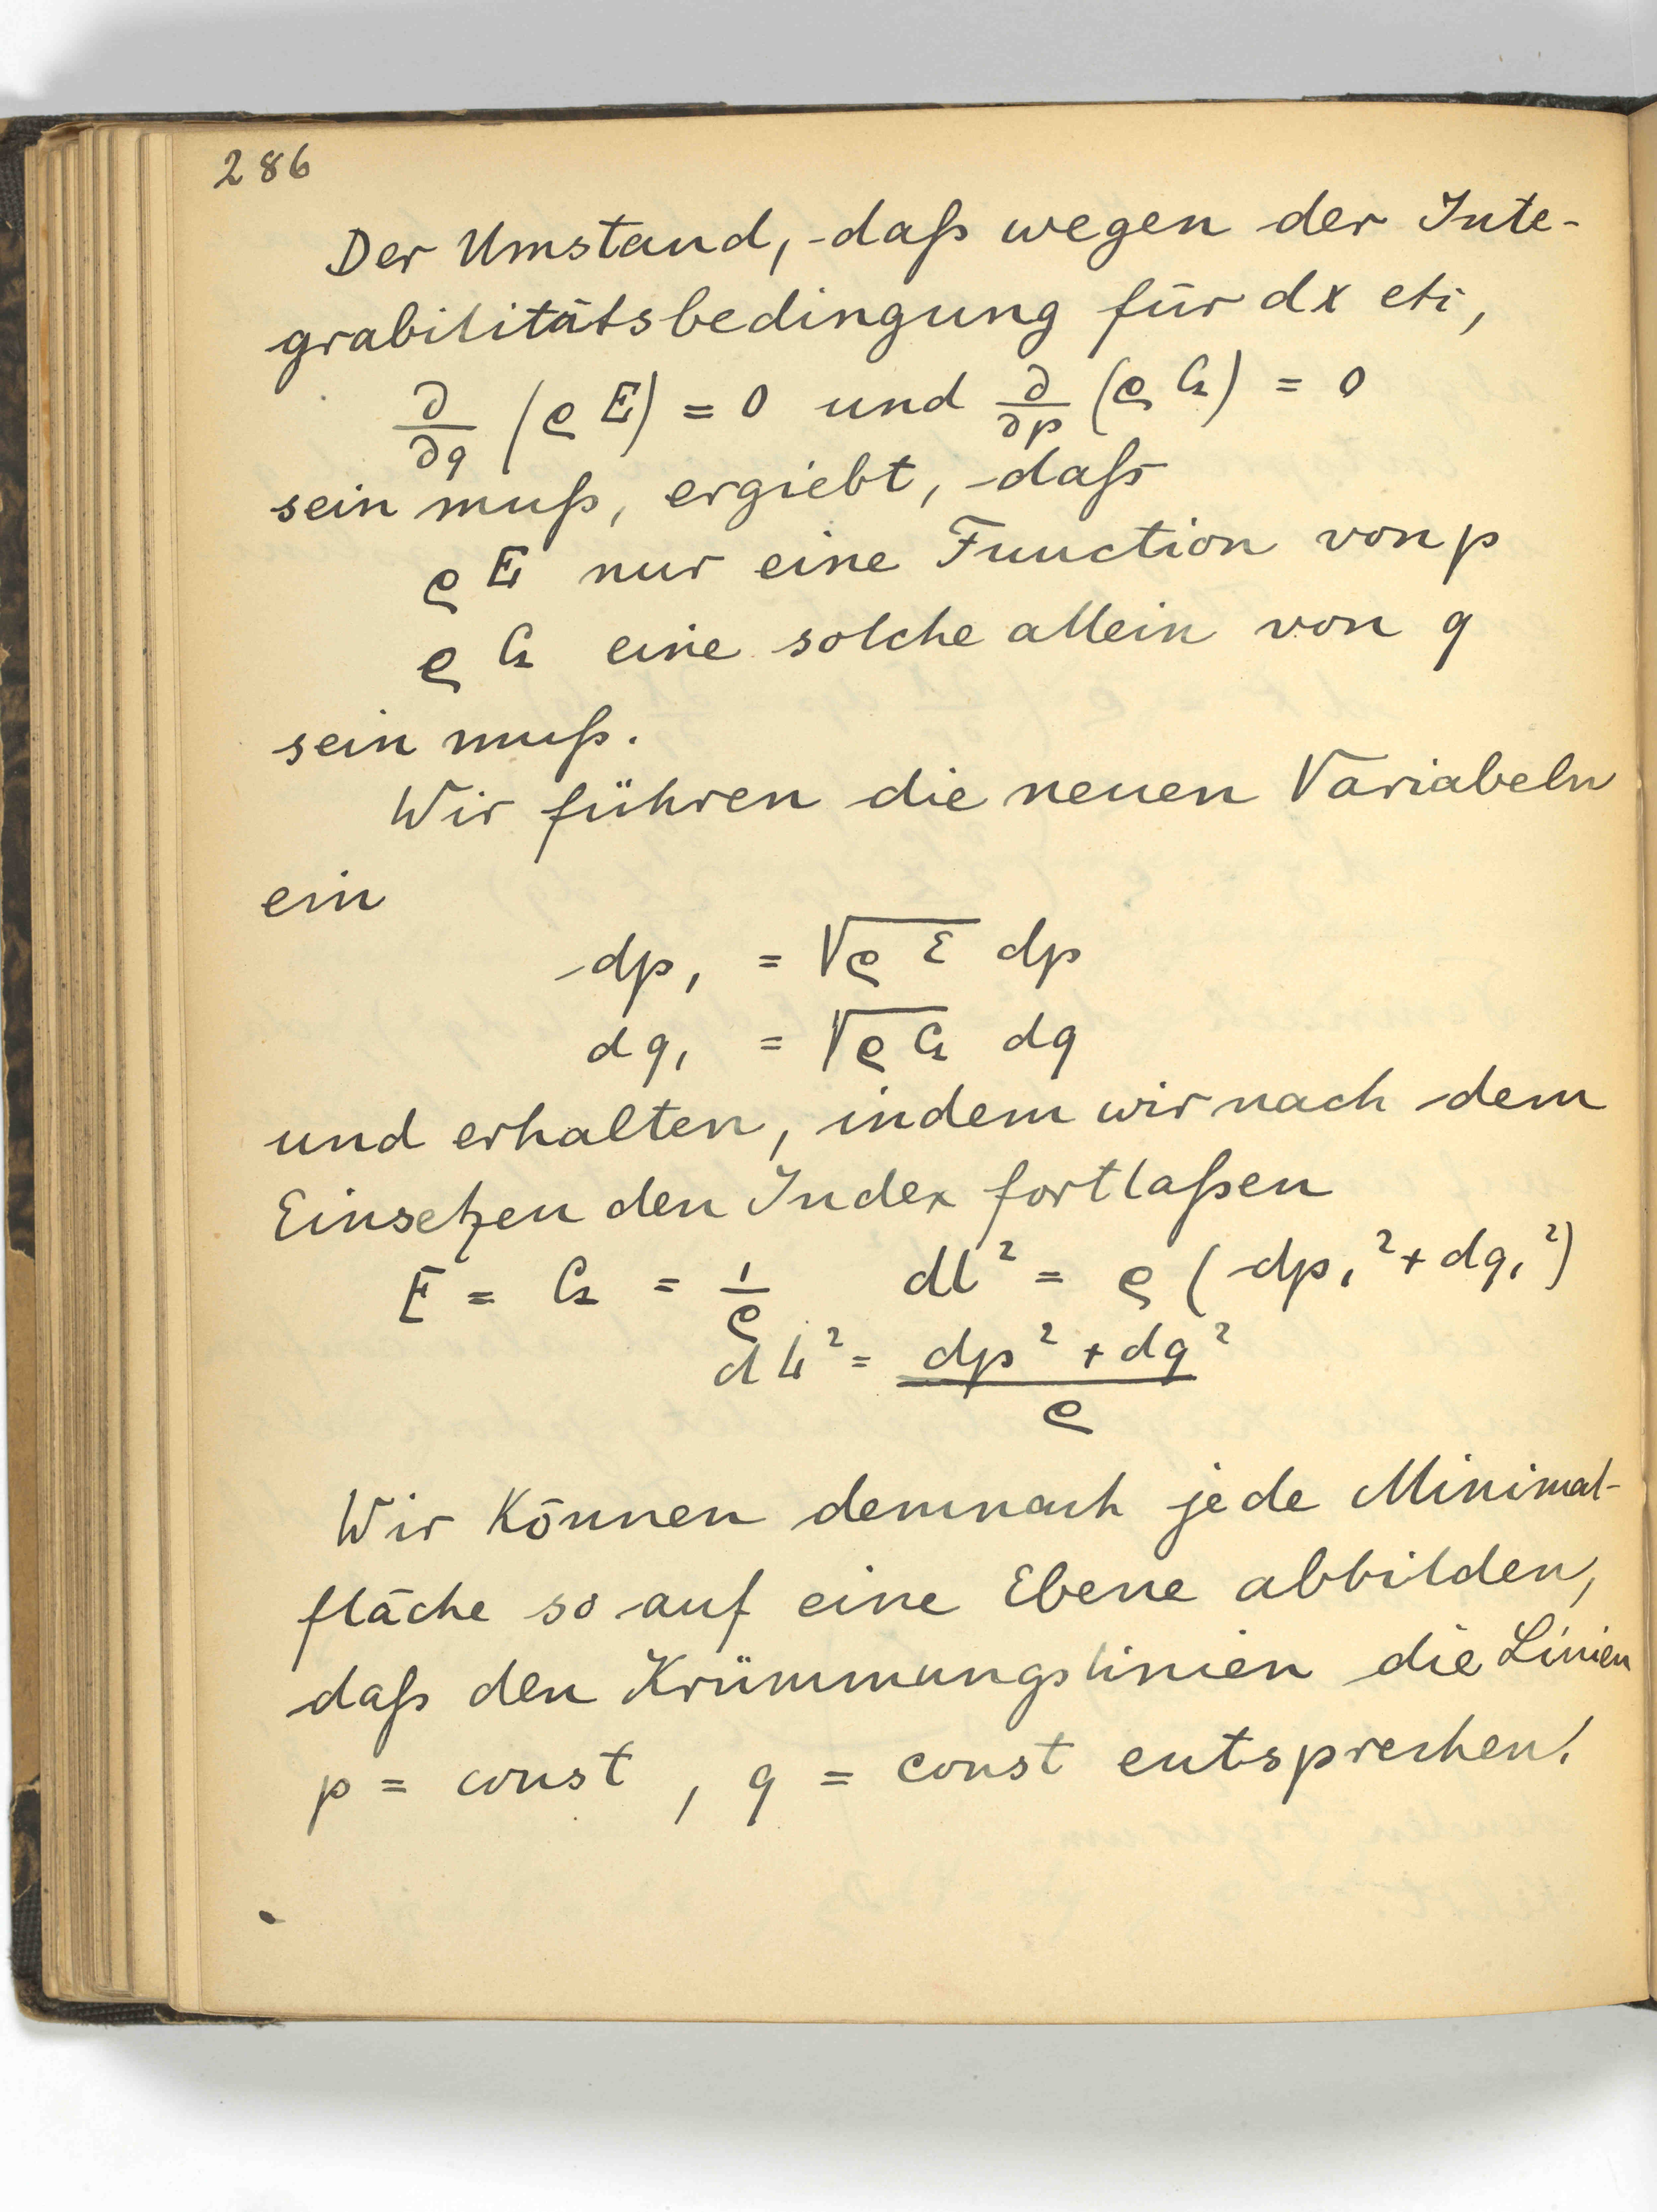 286
Der Umstand, daß wegen der Inte-
grabilitätsbedingung für dx etc,
∂/∂q (ρ E) = 0 und ∂/∂p (ρ G) = 0
sein muß, ergiebt, daß
ρ E nur eine Function von p
ρ G eine solche allein von q
sein muß.
Wir führen die neuen Variabeln
ein
dp₁ = √(ρ E) dp
dq₁ = √(ρ G) dq
und erhalten, indem wir nach dem
Einsetzen den Index fortlaßen
E = G = 1/ρ dl² = ρ (dp₁² + dq₁²)
dL² = (dp² + dq²)/ρ
Wir können demnach jede Minimal-
fläche so auf eine Ebene abbilden,
daß den Krümmungslinien die Linien
p = const, q = const entsprechen!